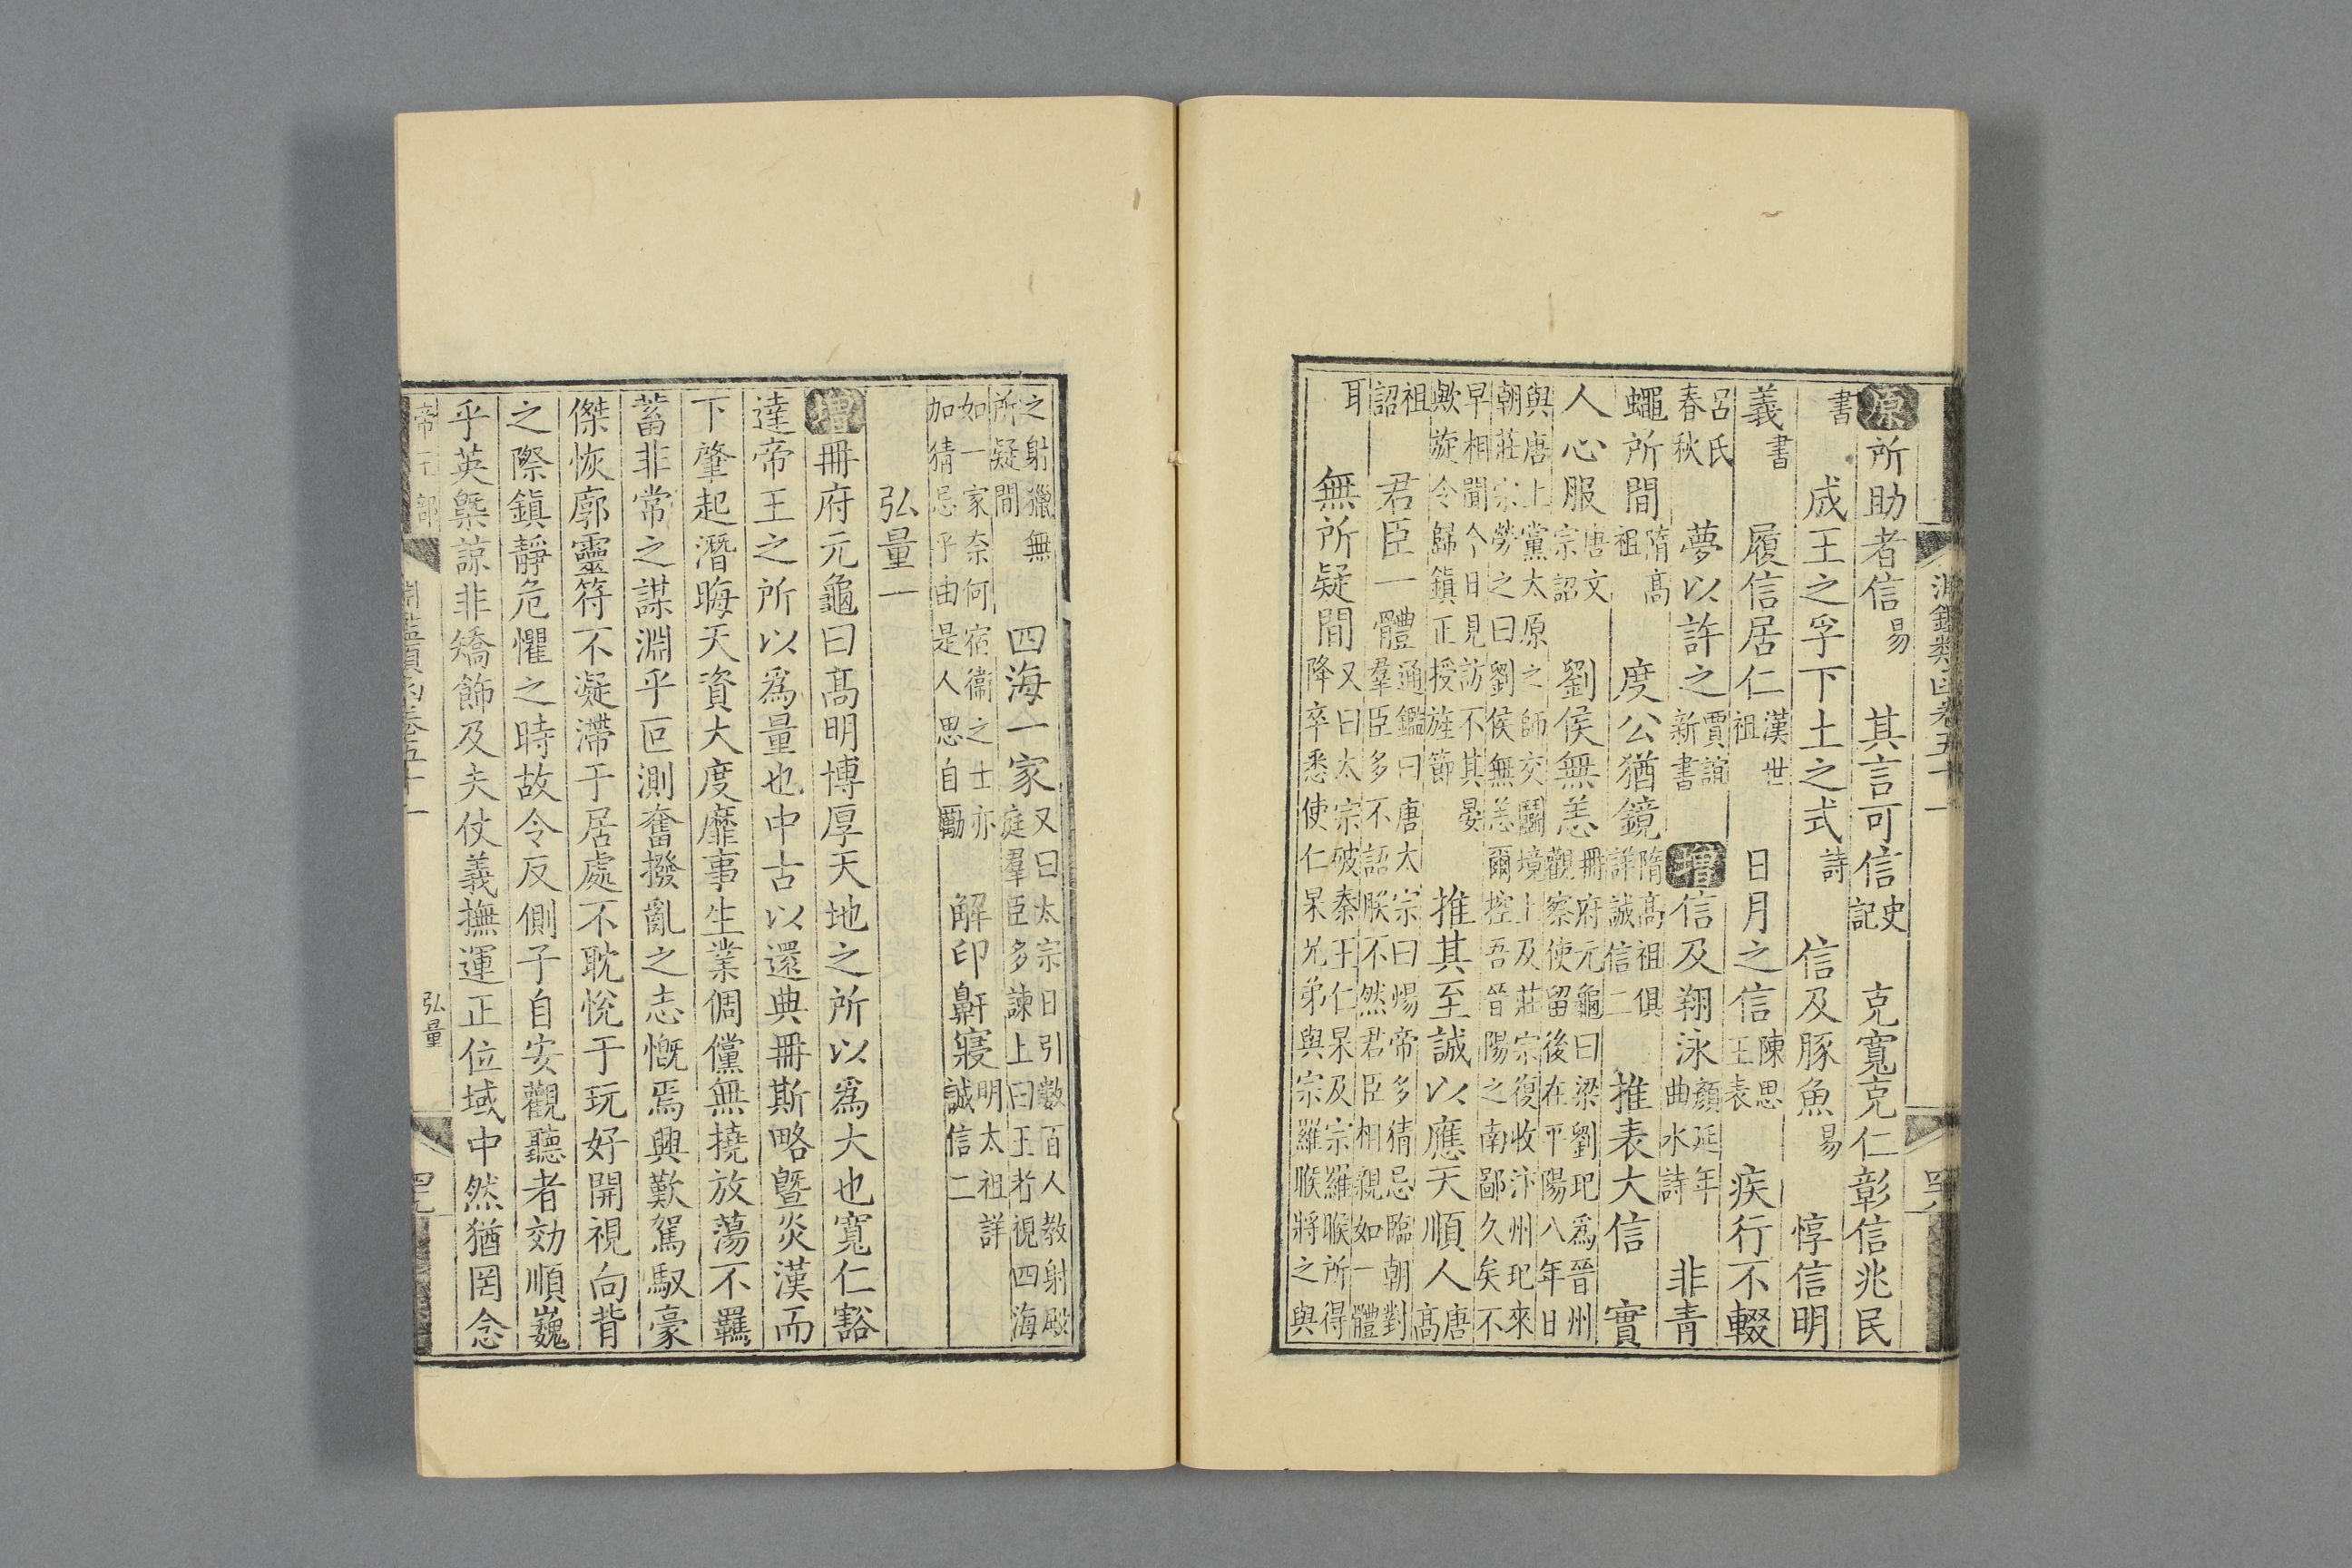 淵鑑類函卷五十一
原 所助者信易 其言可信史記 克寬克仁彰信兆民
書 成王之孚下土之式詩 信及豚魚易 惇信明
義書 履信居仁漢世祖 日月之信陳思王表 疾行不輟
呂氏春秋 夢以許之賈誼新書 增信及翔泳顏延年曲水詩 非青
蠅所間隋髙祖 度公猶鏡隋髙祖俱詳誠信二 推表大信 實
人心服唐文宗詔 劉侯無恙冊府元龜曰梁劉玘爲晉州觀察使留後在平陽八年日
與唐上黨太原之師交鬭境上及莊宗復收汴州玘來朝莊宗勞之曰劉侯無恙爾控吾晉陽之南鄙久矣不
早相聞今日見訪不其晏歟旋令歸鎮正授旌節 推其至誠以應天順人唐髙
祖詔 君臣一體通鑑曰唐太宗曰煬帝多猜忌臨朝對羣臣多不語朕不然君臣相親如一體
耳 無所疑間又曰太宗破秦王仁杲及宗羅睺所得降卒悉使仁杲兄弟與宗羅睺將之與
之射獵無所疑間 四海一家又曰太宗日引數百人教射殿庭羣臣多諫上曰王者視四海
如一家奈何宿衞之士亦加猜忌乎由是人思自勵 解印鼾寢明太祖詳誠信二
弘量一
增冊府元龜曰髙明博厚天地之所以爲大也寬仁豁
達帝王之所以爲量也中古以還典冊斯略曁炎漢而
下肇起潛晦天資大度靡事生業倜儻無撓放蕩不羈
蓄非常之謀淵乎叵測奮撥亂之志慨焉興歎駕馭豪
傑恢廓靈符不凝滯于居處不耽悅于玩好開視向背
之際鎮靜危懼之時故令反側子自安觀聽者効順巍
乎英槩諒非矯飾及夫仗義撫運正位域中然猶罔念
帝王部 淵鑑類函卷五十一 弘量 四九